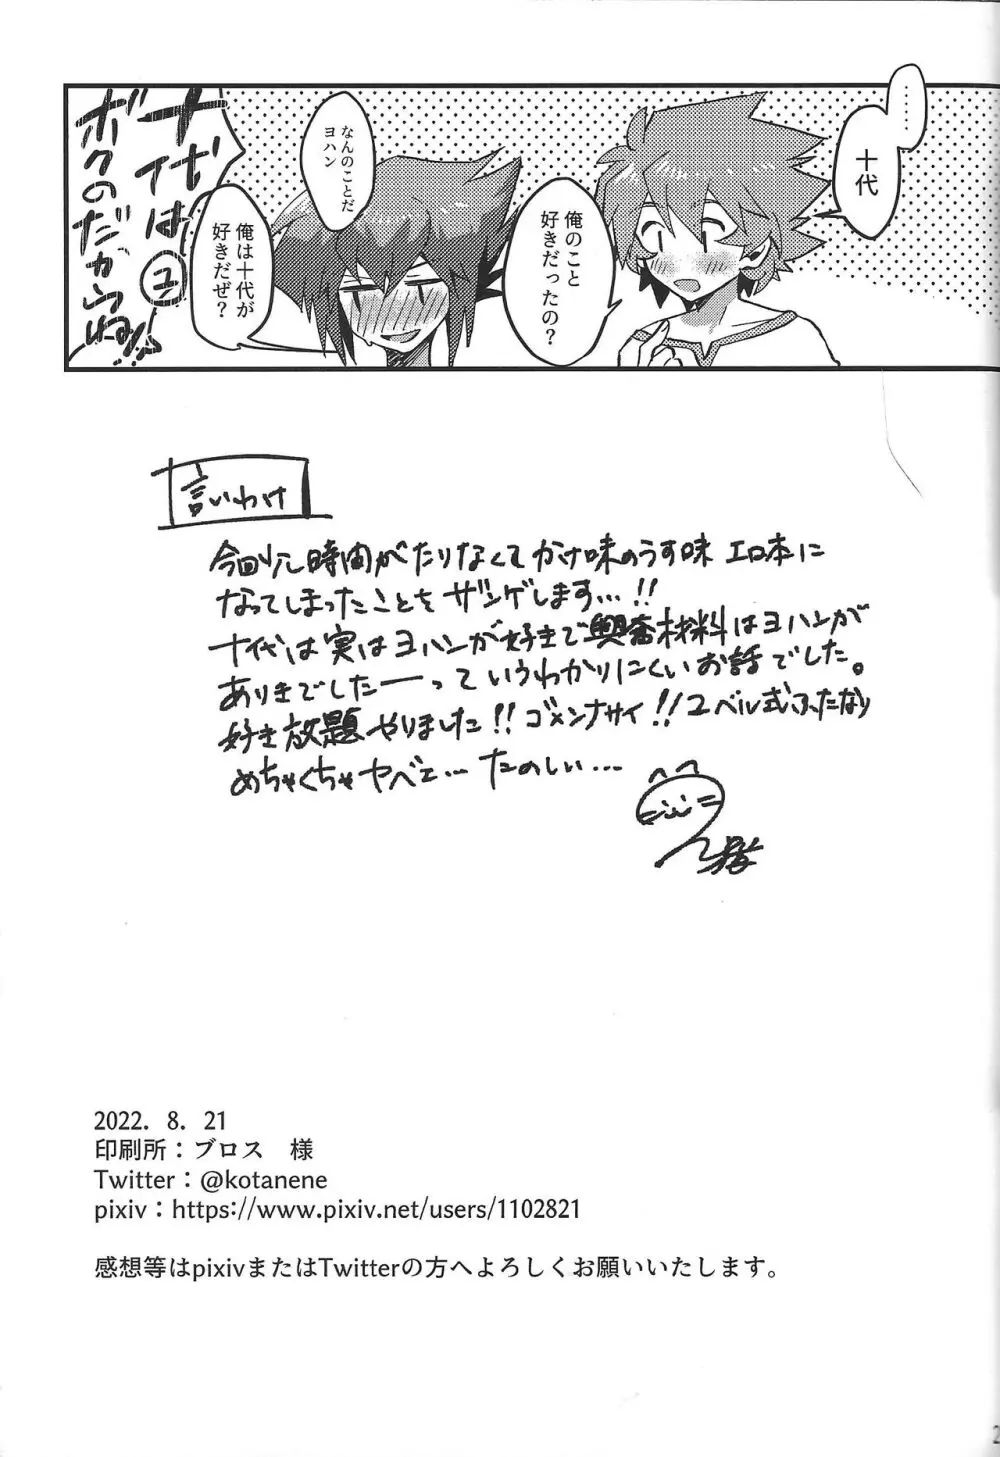 ……
十代
俺のこと
好きだったの？
なんのことだ
ヨハン
俺は十代が
好きだぜ？
十代は
ボクのだからね!!
ユ
言いわけ
今回少し時間がたりなくてかけ味のうす味 エロ本に
なってしまったことをザンゲします…!!
十代は実はヨハンが好きで興奮材料はヨハンが
ありきでしたーーっていうわかりにくいお話でした。
好き放題やりました!! ゴメンナサイ!! ユベル式ふたなり
めちゃくちゃヤベェ… たのしい…
2022. 8. 21
印刷所：ブロス　様
Twitter：@kotanene
pixiv：https://www.pixiv.net/users/1102821
感想等はpixivまたはTwitterの方へよろしくお願いいたします。
2